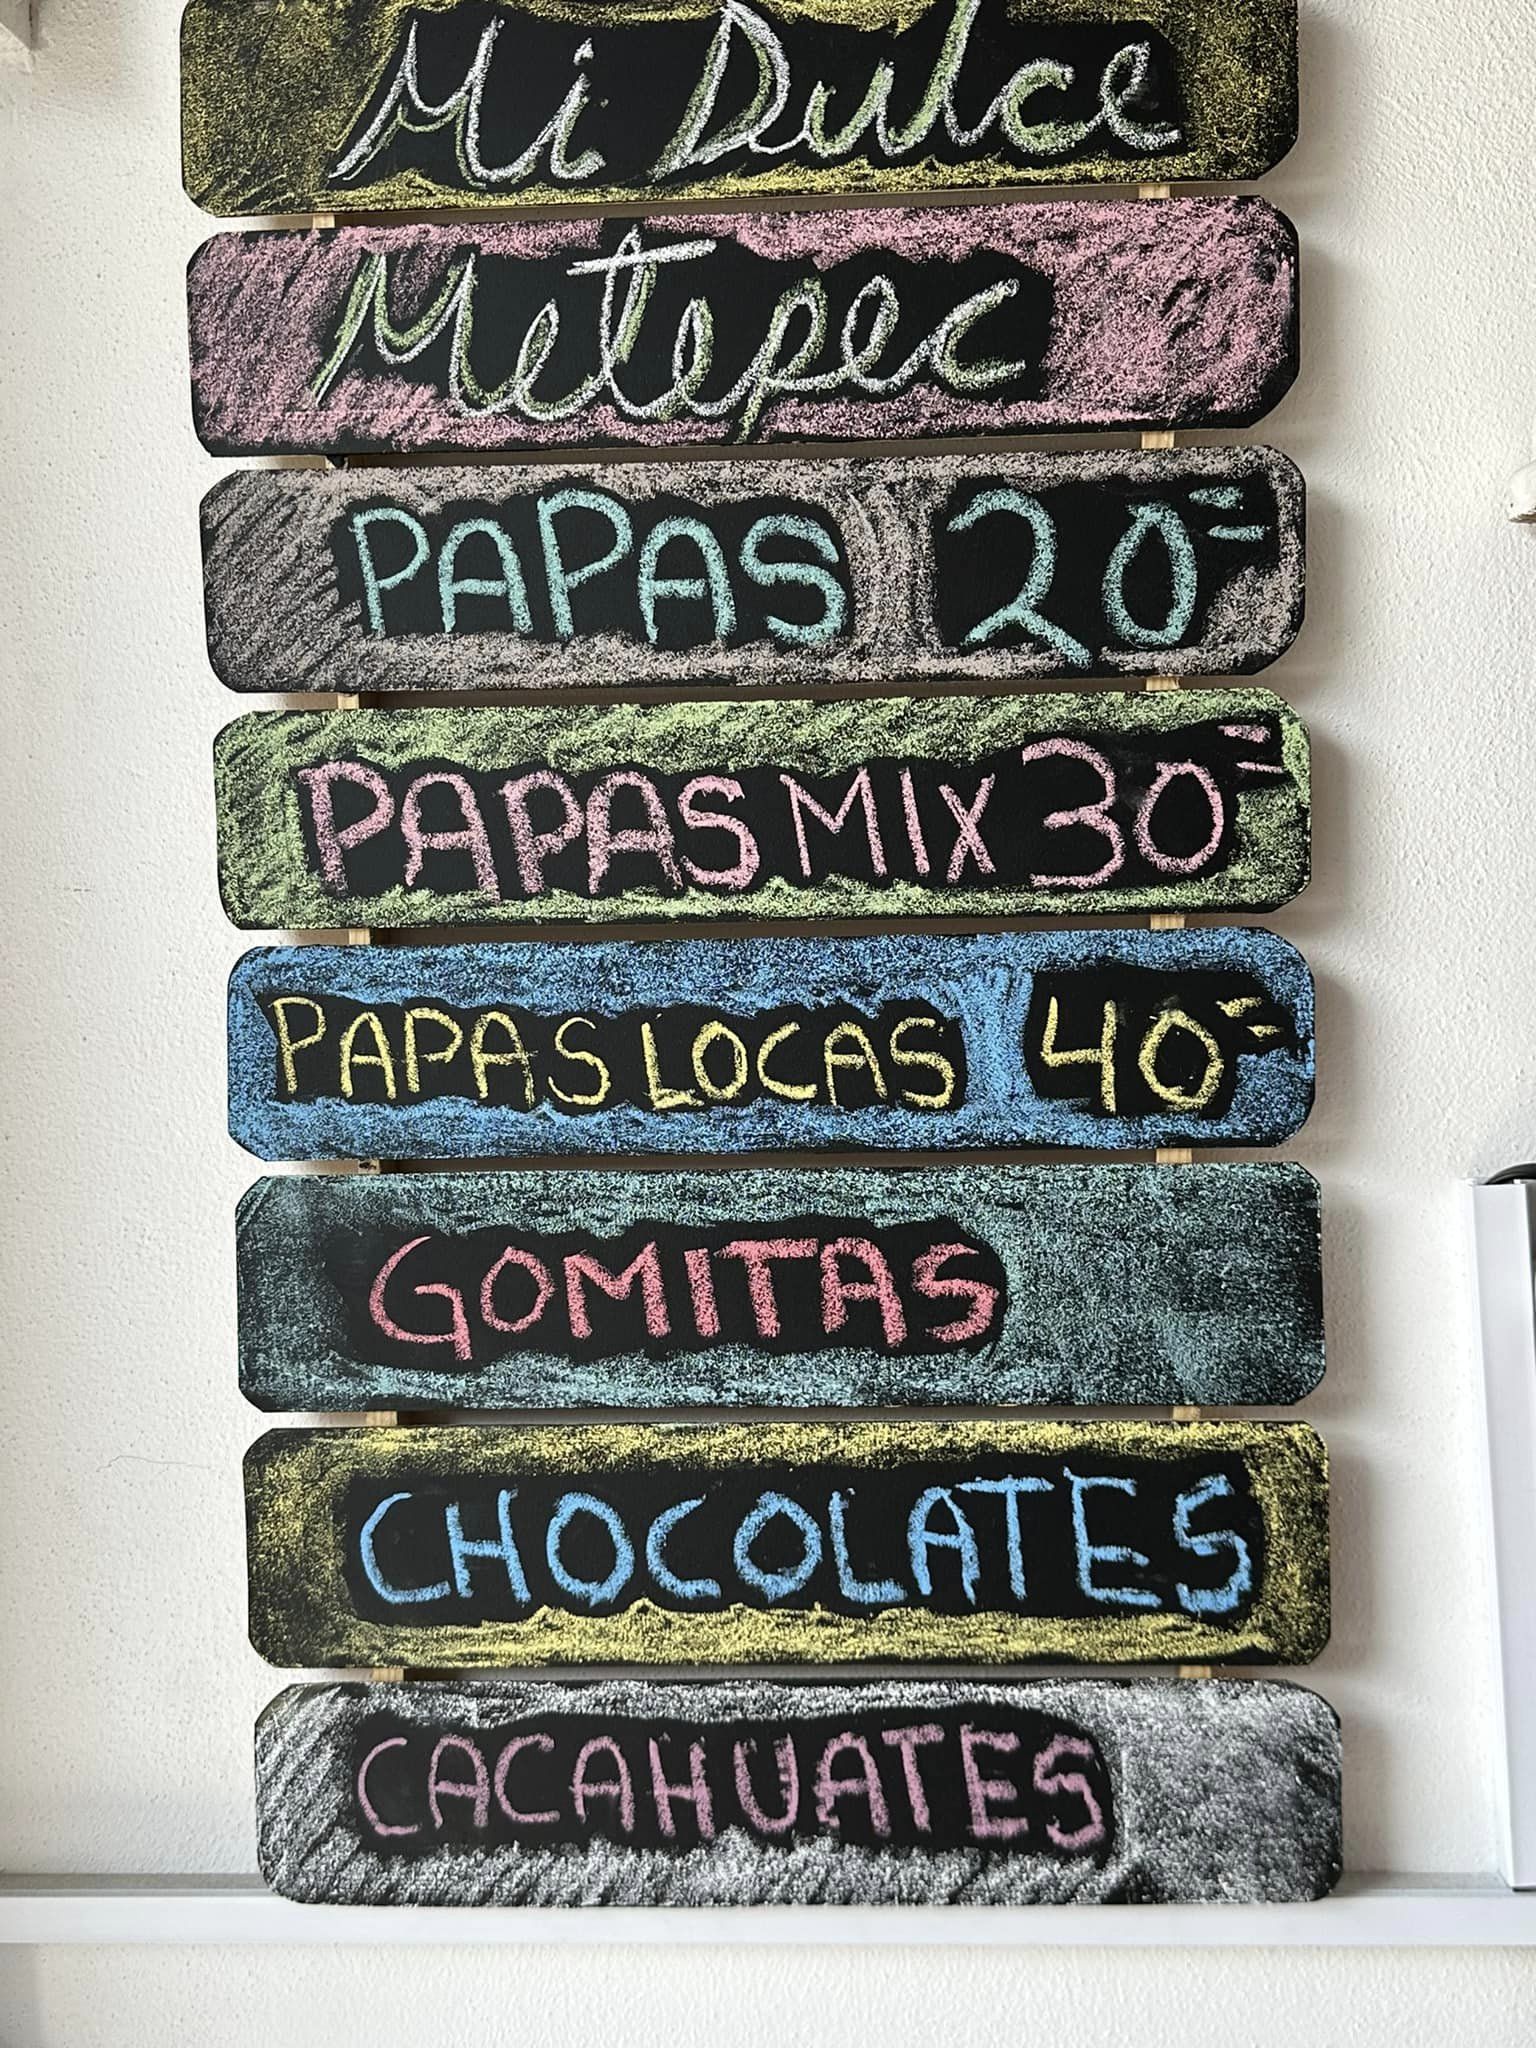 Mi Dulce
Metepec
PAPAS 20=
PAPAS MIX 30=
PAPAS LOCAS 40=
GOMITAS
CHOCOLATES
CACAHUATES